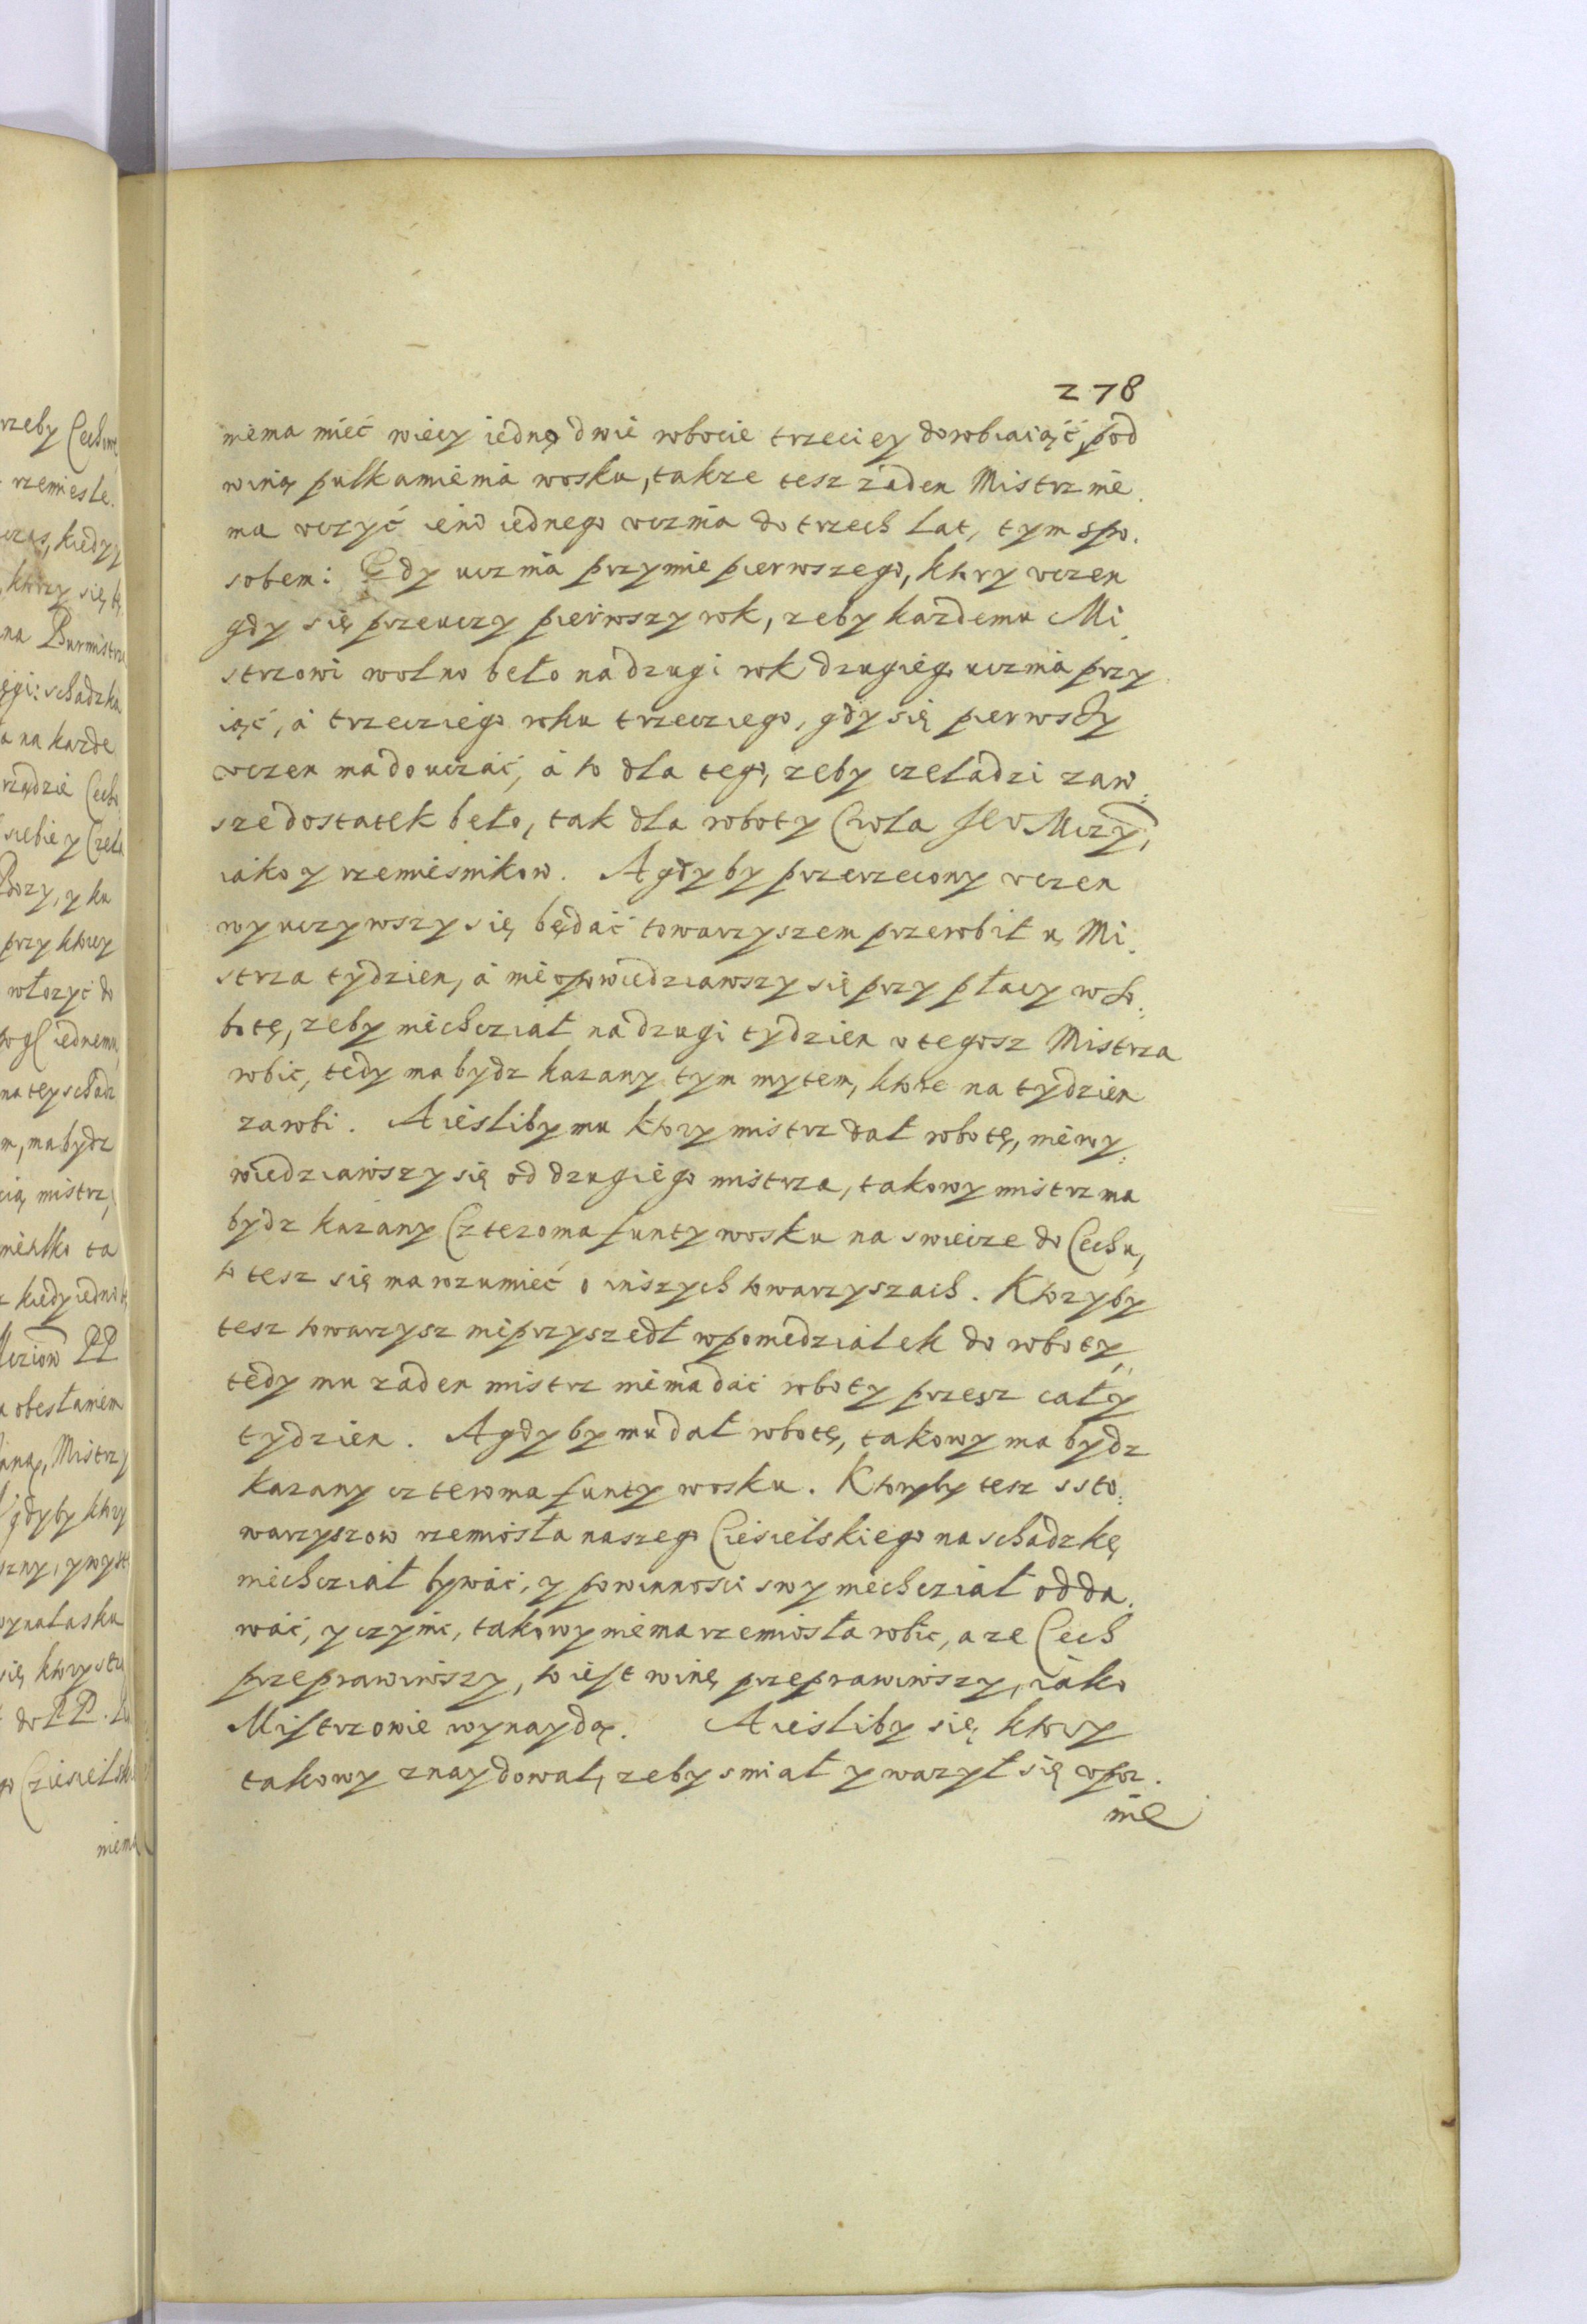 278
niema mieć wiecy iedno dwie robocie trzeciey dorobiaiąć, pod
winą pułkamienia wosku, takze tesz zaden Mistrz nie
ma vczyć ieno iednego vcznia do trzech lat, tym spo.
sobem: Gdy ucznia przymie pierwszego, ktory vczen
gdy się przeuczy pierwszy rok, zeby kazdemu Mi.
strzowi wolno beło na drugi rok drugiego ucznia przy
iąć, á trzecziego roku trzecziego, gdy się pierwszy
vczen ma douczać, á to dla tego, zeby czeladzi zaw:
sze dostatek beło, tak dla roboty Crola Je° Mczy,
iako y rzemiesnikow. A gdyby przerzeczony vczen
wyuczywszy się będać towarzyszem przerobił u Mi.
strza tydzien, á nie opowiedziawszy się przy płacy w so.
botę, zeby niechcział na drugi tydzien v tegosz Mistrza
robic, tedy ma bydz karany tym mytem, ktore na tydzien
zarobi. A iesliby mu ktory mistrz dał robotę, nie wy:
wiedziawszy się od drugiego mistrza, takowy mistrz ma
bydz karany Czteroma funty wosku na swiecze do Cechu,
to tesz się ma rozumieć o inszych towarzyszach. Ktoryby
tesz towarzysz nie przyszedł w poniedziałek do roboty,
tedy mu zaden mistrz niema dać roboty przesz cały
tydzien. A gdyby mu dał robotę, takowy ma bydz
karany czteroma funty wosku. Ktoryby tesz s sto:
warzyszow rzemiosła naszego Ciesielskiego na schadzkę
niechciał bywać, y powinnosci swy niechciał odda.
wać, y czynic, takowy niema rzemiosła robic, aze Cech
przeprawiwszy, to iest winę przeprawiwszy, iako
Mistrzowie wynaydą. A iesliby się ktory
takowy znaydował, zeby smiał y wazył się vpor.
nie